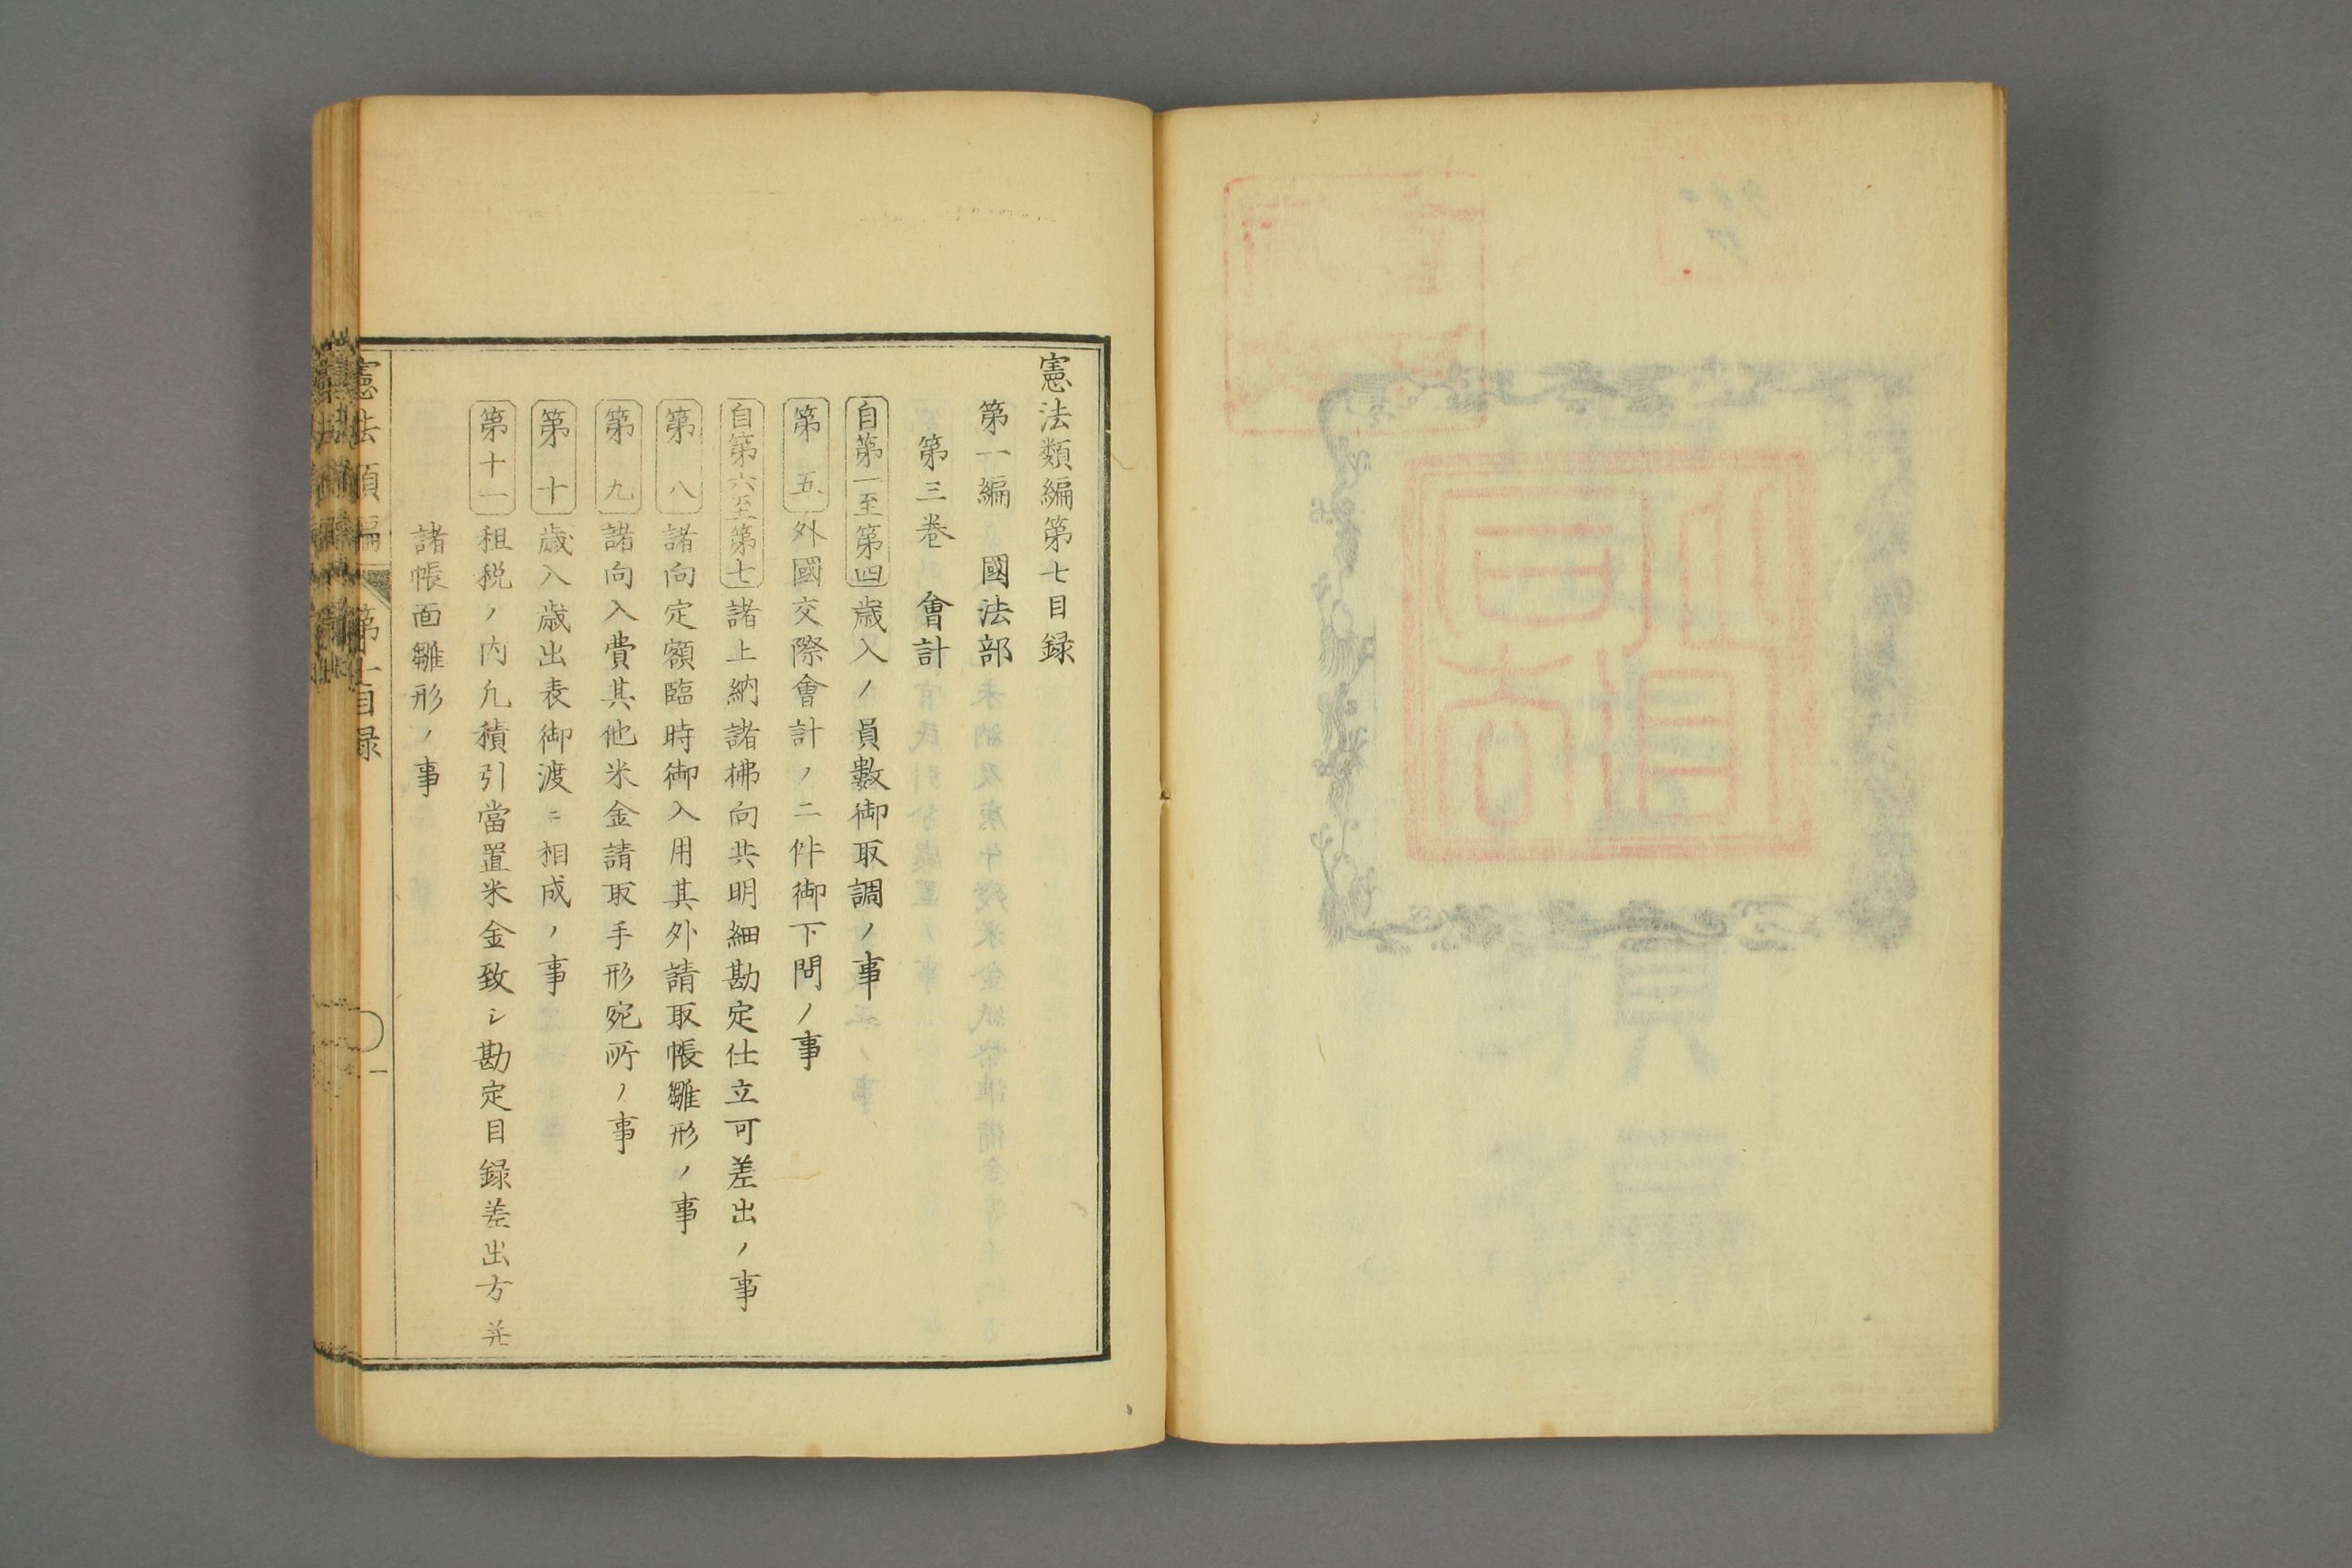 憲法類編第七目録
第一編　國法部
第三巻　會計
自第一至第四　歳入ノ員數御取調ノ事
第五　外國交際會計ノ二件御下問ノ事
自第六至第七　諸上納諸拂向共明細勘定仕立可差出ノ事
第八　諸向定額臨時御入用其外請取帳雛形ノ事
第九　諸向入費其他米金請取手形宛所ノ事
第十　歳入歳出表御渡ニ相成ノ事
第十一　租税ノ内凢積引當置米金致シ勘定目録差出方并
諸帳面雛形ノ事
憲法類編　第七目録　一